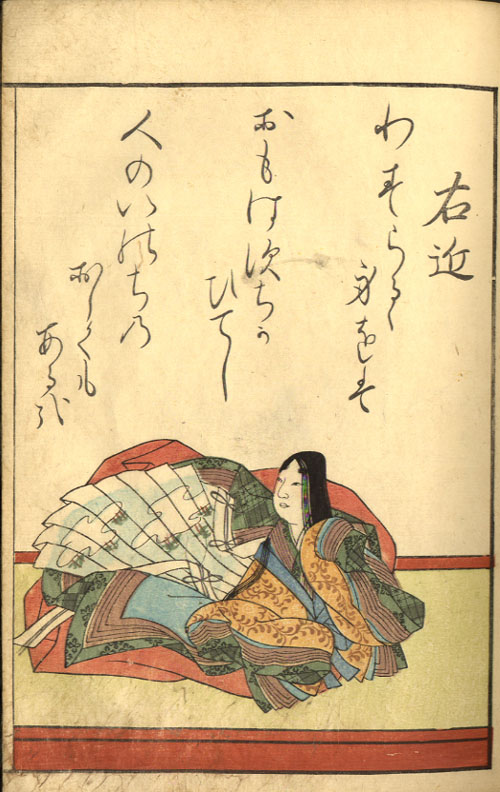 右近
わすらるゝ
身をは
おもはすちか
ひてし
人のいのちの
おしくも
ある哉